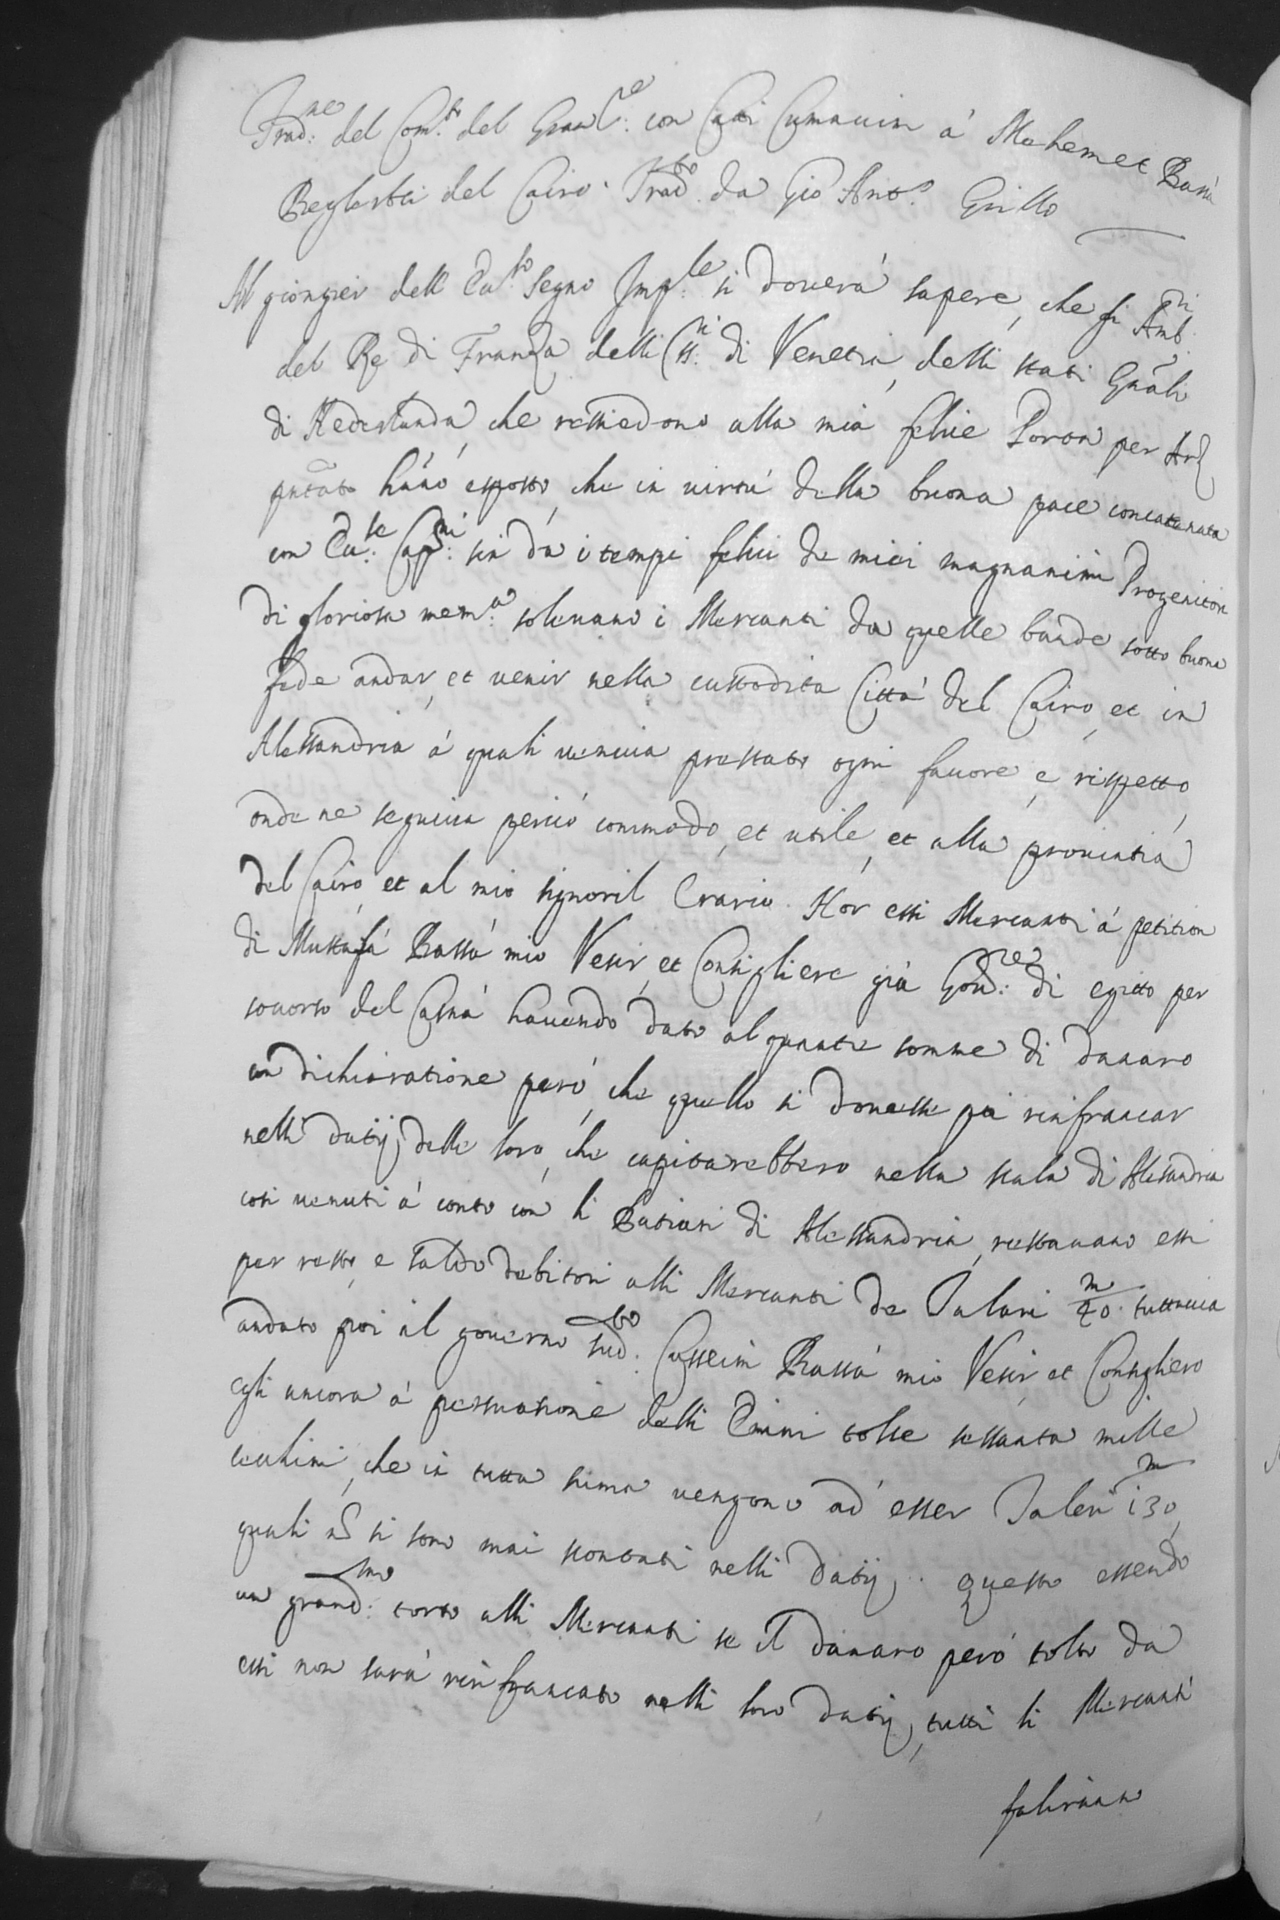 Trad.ne del Com.to del Gran S.re con Catti Cumaiun à Mehemet Bassà
Beglerbei del Cairo. Trad.to da Gio Ant.o Grillo
All gionger dell Ecc.so Segno Imp.le si doverà sapere, che gli Amb.ri
del Re di Franza delli SS.ri di Venetia, delli stati Gnãli
di Nederlanda, che rissiedono alla mia felice Porta per Arz
pñtato hãno esposto, che in virtù della buona pace concatenata
con Ecc.se Cap.ni sin dà i tempi felici de miei magnanimi Progenitori
di gloriosa mem.a solevano i Mercanti da quelle bande sotto buona
fede andar, et venir nella custodita Città del Cairo, et in
Alessandria à quali veniva prestato ogni favore, e rispetto,
onde ne seguiva perciò commodo, et utile, et alla provintia
del Cairo, et al mio signoril Erario. Hor essi Mercanti à petition
di Mustafà Bassà mio Vesir, et Consigliere già Gov.re di egitto per
soccorso del Casnà havendo dato alquante somme di danaro
con dichiaratione però, che quello si dovesse poi rinfrancar
nelli datij delle loro, che capitarebbero nella scala di Alessandria
così venuti à conto con li Datiari di Alessandria, restavano essi
per resto, e saldo debitori alli Mercanti de Talari 40 m. tuttavia
andato poi al governo sud.to Cusseim Bassà mio Vesir, et Consigliero
egli ancora à persuasione delli Emini tolse sessanta mille
cechini, che in tutta suma vengono ad esser Taleri 130 m,
quali nõ si sono mai scontati nelli datij. questo essendo
un grand.mo torto alli Mercanti se il danaro però tolto da
essi non sarà rinfrancato nelli loro datij, tutti li Mercanti
faliranno